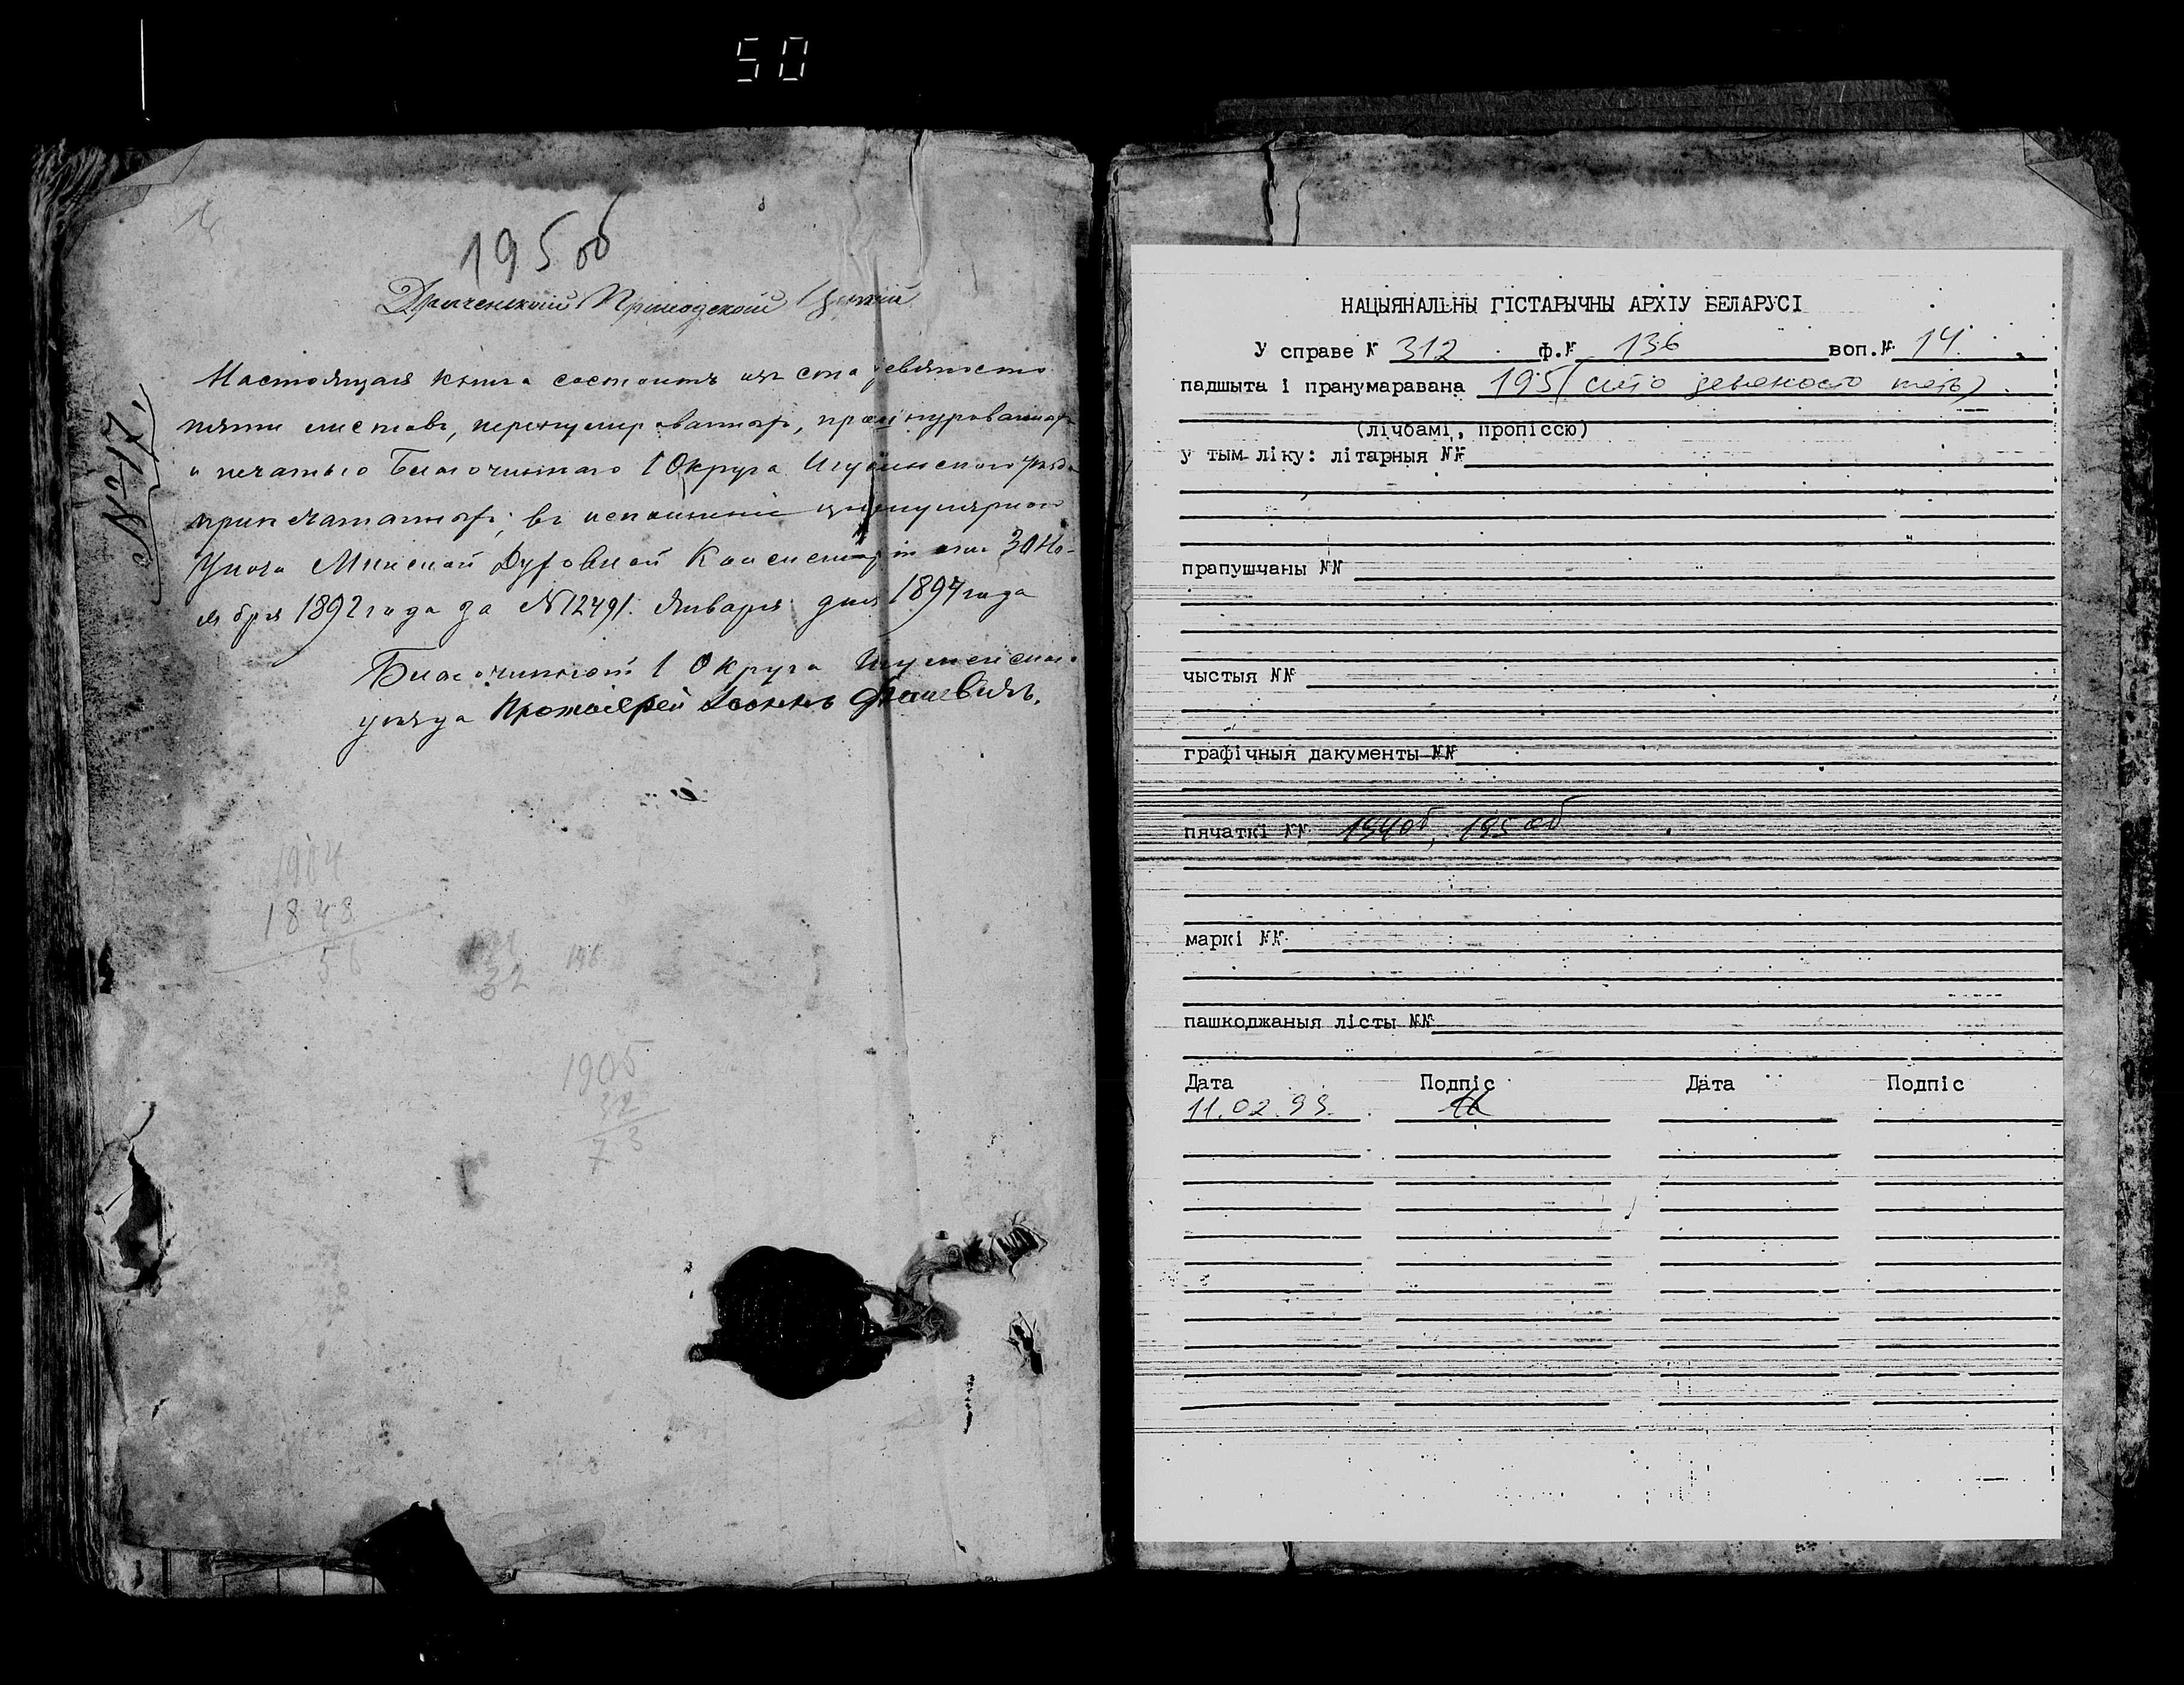 50
195 об
Приходской Церкви
Настоящая книга состоитъ изъ ста девяносто
пяти листовъ, перенумерованныхъ, прошнурованныхъ
и печатью Благочиннаго 1 Округа Игуменского уѣзда
припечатанныхъ, въ исполненіе циркулярнаго
Указа Минской Духовной Консисторіи отъ 30 Но-
ября 1892 года за № 12491. Января дня 1894 года
Благочинный 1 Округа Игуменскаго
уѣзда Протоіерей Іоаннъ
№ 17.
1904
1848
56
32
196
1905
32
73
НАЦЫЯНАЛЬНЫ ГІСТАРЫЧНЫ АРХІУ БЕЛАРУСІ
У справе № 312 ф.№ 136 воп.№ 14
падшыта і пранумаравана 195 (сто девяносто пять)
(лічбамі, пропіссю)
у тым ліку: літарныя №№
прапушчаны №№
чыстыя №№
графічныя дакументы №№
пячаткі №№ 194об, 195об
маркі №№
пашкоджаныя лісты №№
Дата Подпіс Дата Подпіс
11.02.99